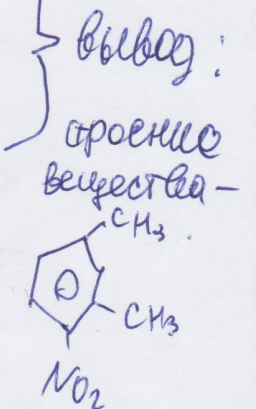 вывод:
строение
вещества –
CH3
CH3
NO2